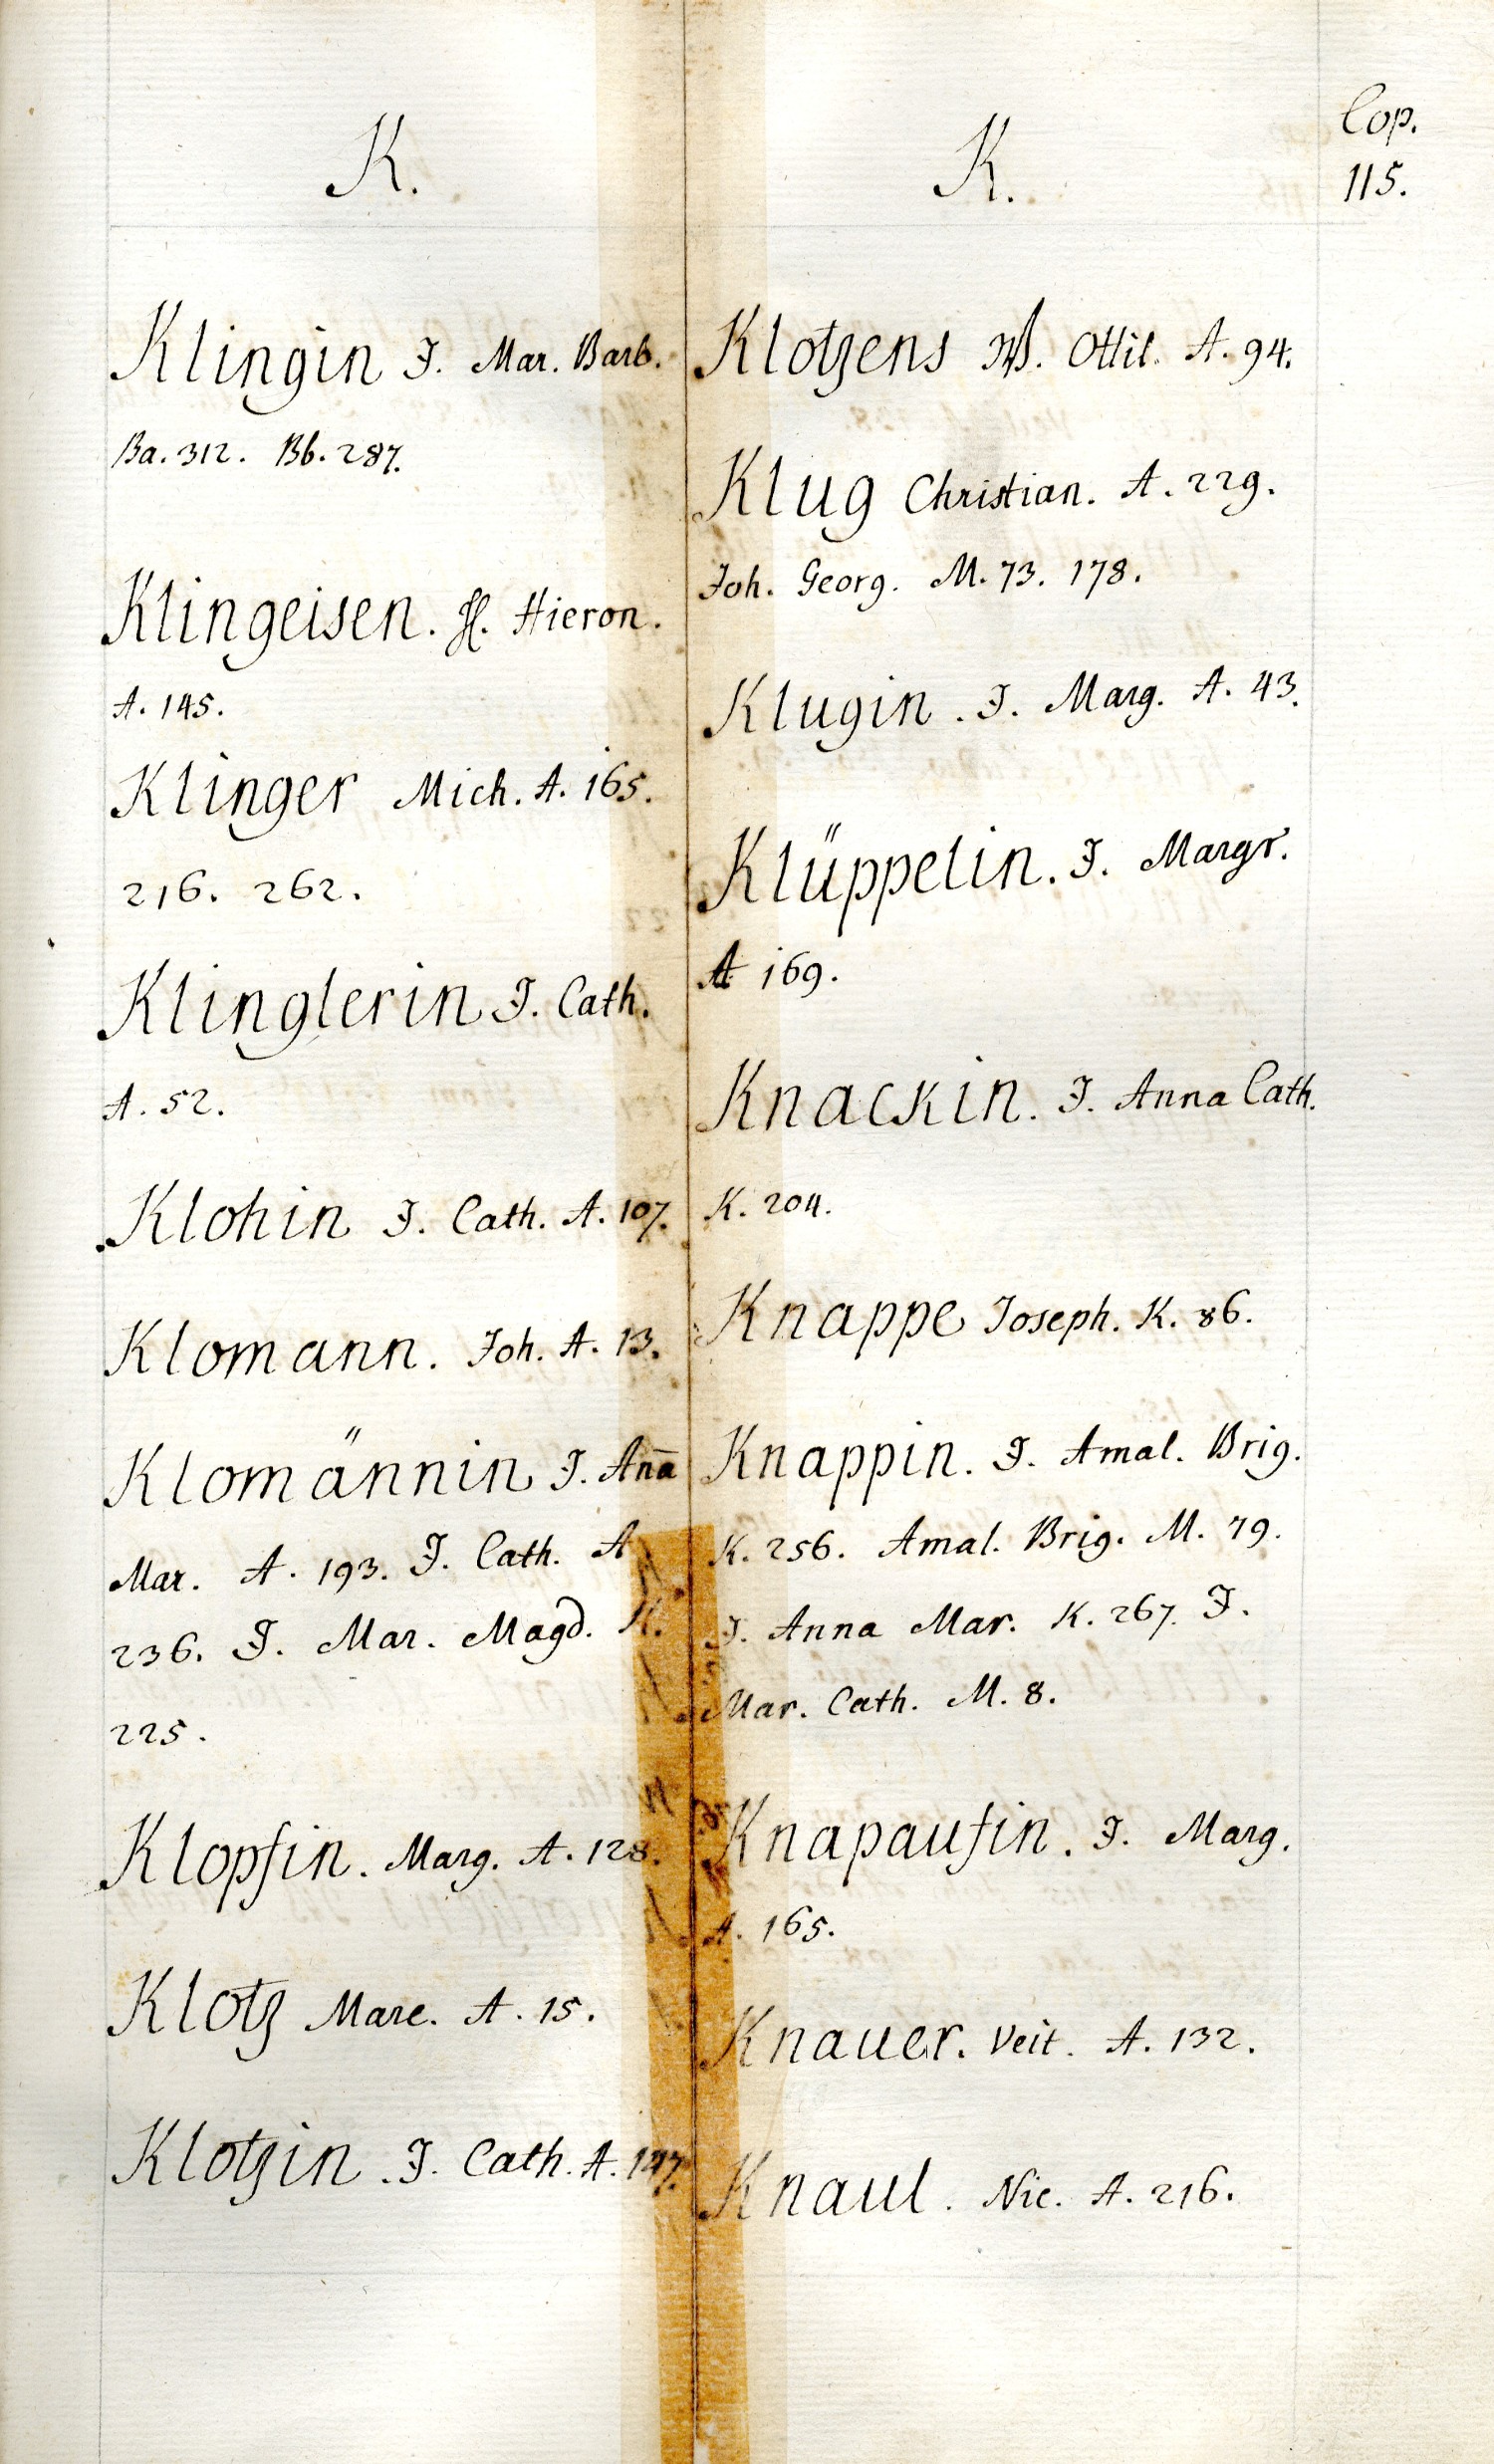 K.
Klingin J. Mar. Barb.
Ba. 312. Bb. 287.
Klingeisen. H. Hieron.
A. 145.
Klinger Mich. A. 165.
216. 262.
Klinglerin J. Cath.
A. 52.
Klohin J. Cath. A. 107.
Klomann. Joh. A. 13.
Klomännin J. Anā
Mar. A. 193. J. Cath. A
236. J. Mar. Magd. K.
225.
Klopfin. Marg. A. 128.
Klotz Marc. A. 15.
Klotzin. J. Cath. A. 147.
K.
Klotzens W. Ottil. A. 94.
Klug Christian. A. 229.
Joh. Georg. M. 73. 178.
Klugin. J. Marg. A. 43.
Klüppelin. J. Margr.
A 169.
Knackin. J. Anna Cath.
K. 204.
Knappe Joseph. K. 86.
Knappin. J. Amal. Brig.
K. 256. Amal. Brig. M. 79.
J. Anna Mar. K. 267. J.
Mar. Cath. M. 8.
Knapaufin. J. Marg.
A. 165.
Knauer. Veit. A. 132.
Knaul. Nic. A. 216.
Cop.
115.